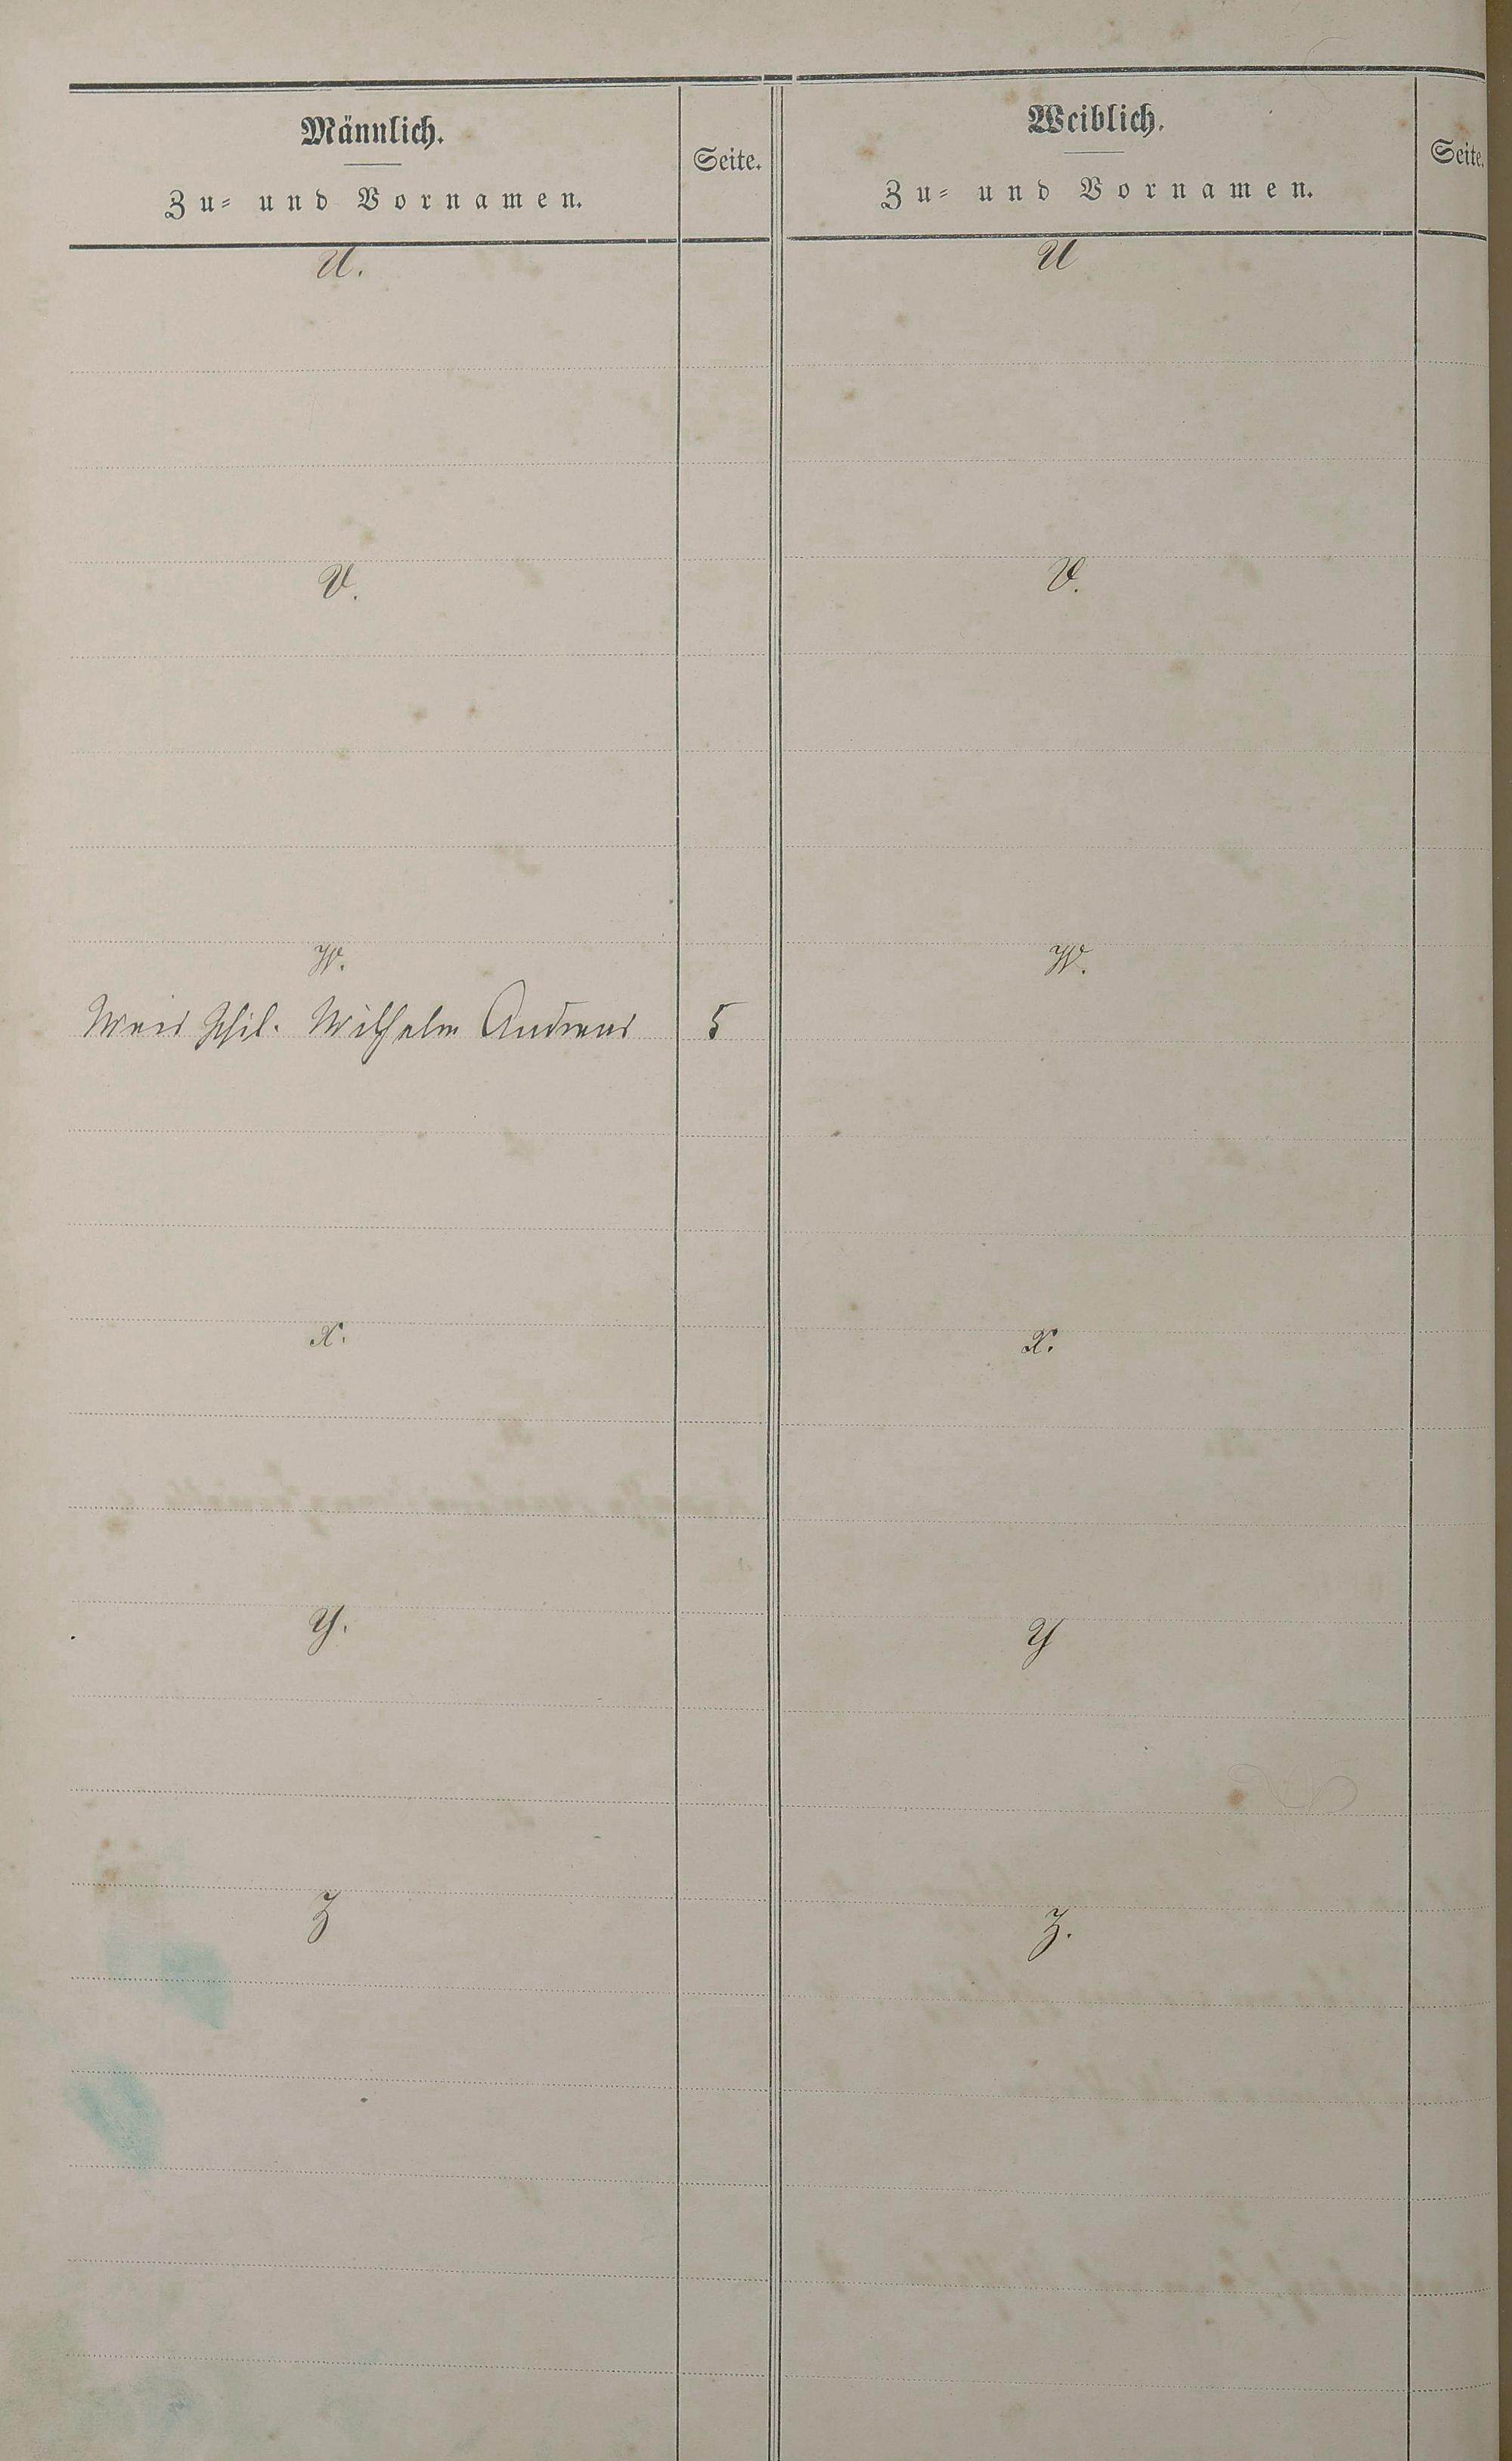 Männlich.
Zu- und Vornamen.
Seite.
Weiblich.
Zu- und Vornamen.
Seite.
U.
U
V.
V.
W.
W.
Weis Phil. Wilhelm Andreas 5
X.
X.
Y.
Y
Z
Z.